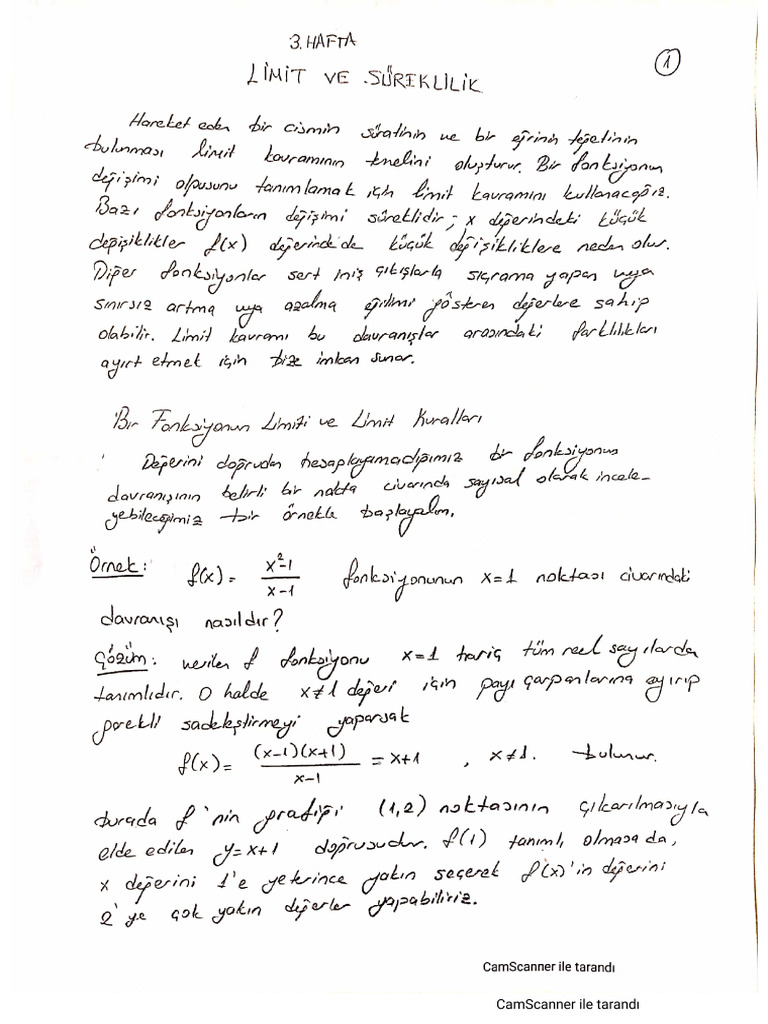 3. HAFTA
1
LİMİT VE SÜREKLİLİK
Hareket eden bir cismin süratinin ve bir eğrinin teğetinin
bulunması limit kavramının temelini oluşturur. Bir fonksiyonun
değişimi olgusunu tanımlamak için limit kavramını kullanacağız.
Bazı fonksiyonların değişimi süreklidir; x değerindeki küçük
değişiklikler f(x) değerinde de küçük değişikliklere neden olur.
Diğer fonksiyonlar sert iniş çıkışlarla sıçrama yapan veya
sınırsız artma veya azalma eğilimi gösteren değerlere sahip
olabilir. Limit kavramı bu davranışlar arasındaki farklılıkları
ayırt etmek için bize imkan sunar.
Bir Fonksiyonun Limiti ve Limit Kuralları
Değerini doğrudan hesaplayamadığımız bir fonksiyonun
davranışının belirli bir nokta civarında sayısal olarak incele-
yebileceğimiz bir örnekle başlayalım.
Örnek: f(x) = \frac{x^2-1}{x-1} fonksiyonunun x=1 noktası civarındaki
davranışı nasıldır?
Çözüm: verilen f fonksiyonu x=1 hariç tüm reel sayılarda
tanımlıdır. O halde x≠1 değeri için payı çarpanlarına ayırıp
gerekli sadeleştirmeyi yaparsak
f(x) = \frac{(x-1)(x+1)}{x-1} = x+1 , x≠1. bulunur.
burada f'nin grafiği (1,2) noktasının çıkarılmasıyla
elde edilen y=x+1 doğrusudur. f(1) tanımlı olmasa da,
x değerini 1'e yeterince yakın seçerek f(x)'in değerini
2'ye çok yakın değerler yapabiliriz.
CamScanner ile tarandı
CamScanner ile tarandı